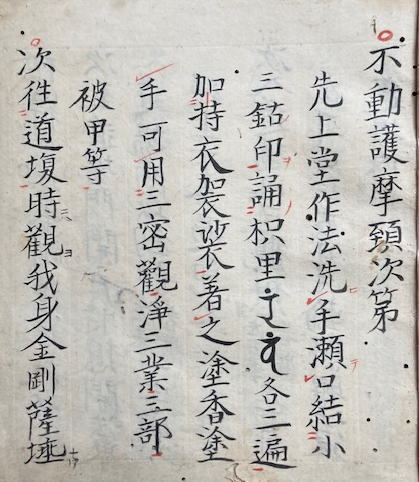 不動護摩頸次第
先上堂作法洗手瀬口結小
三鈷印誦枳里 各三遍
加持衣袈裟着之塗香塗
手可用三密觀淨三業三部
被甲等
次往道場時觀我身金剛薩埵